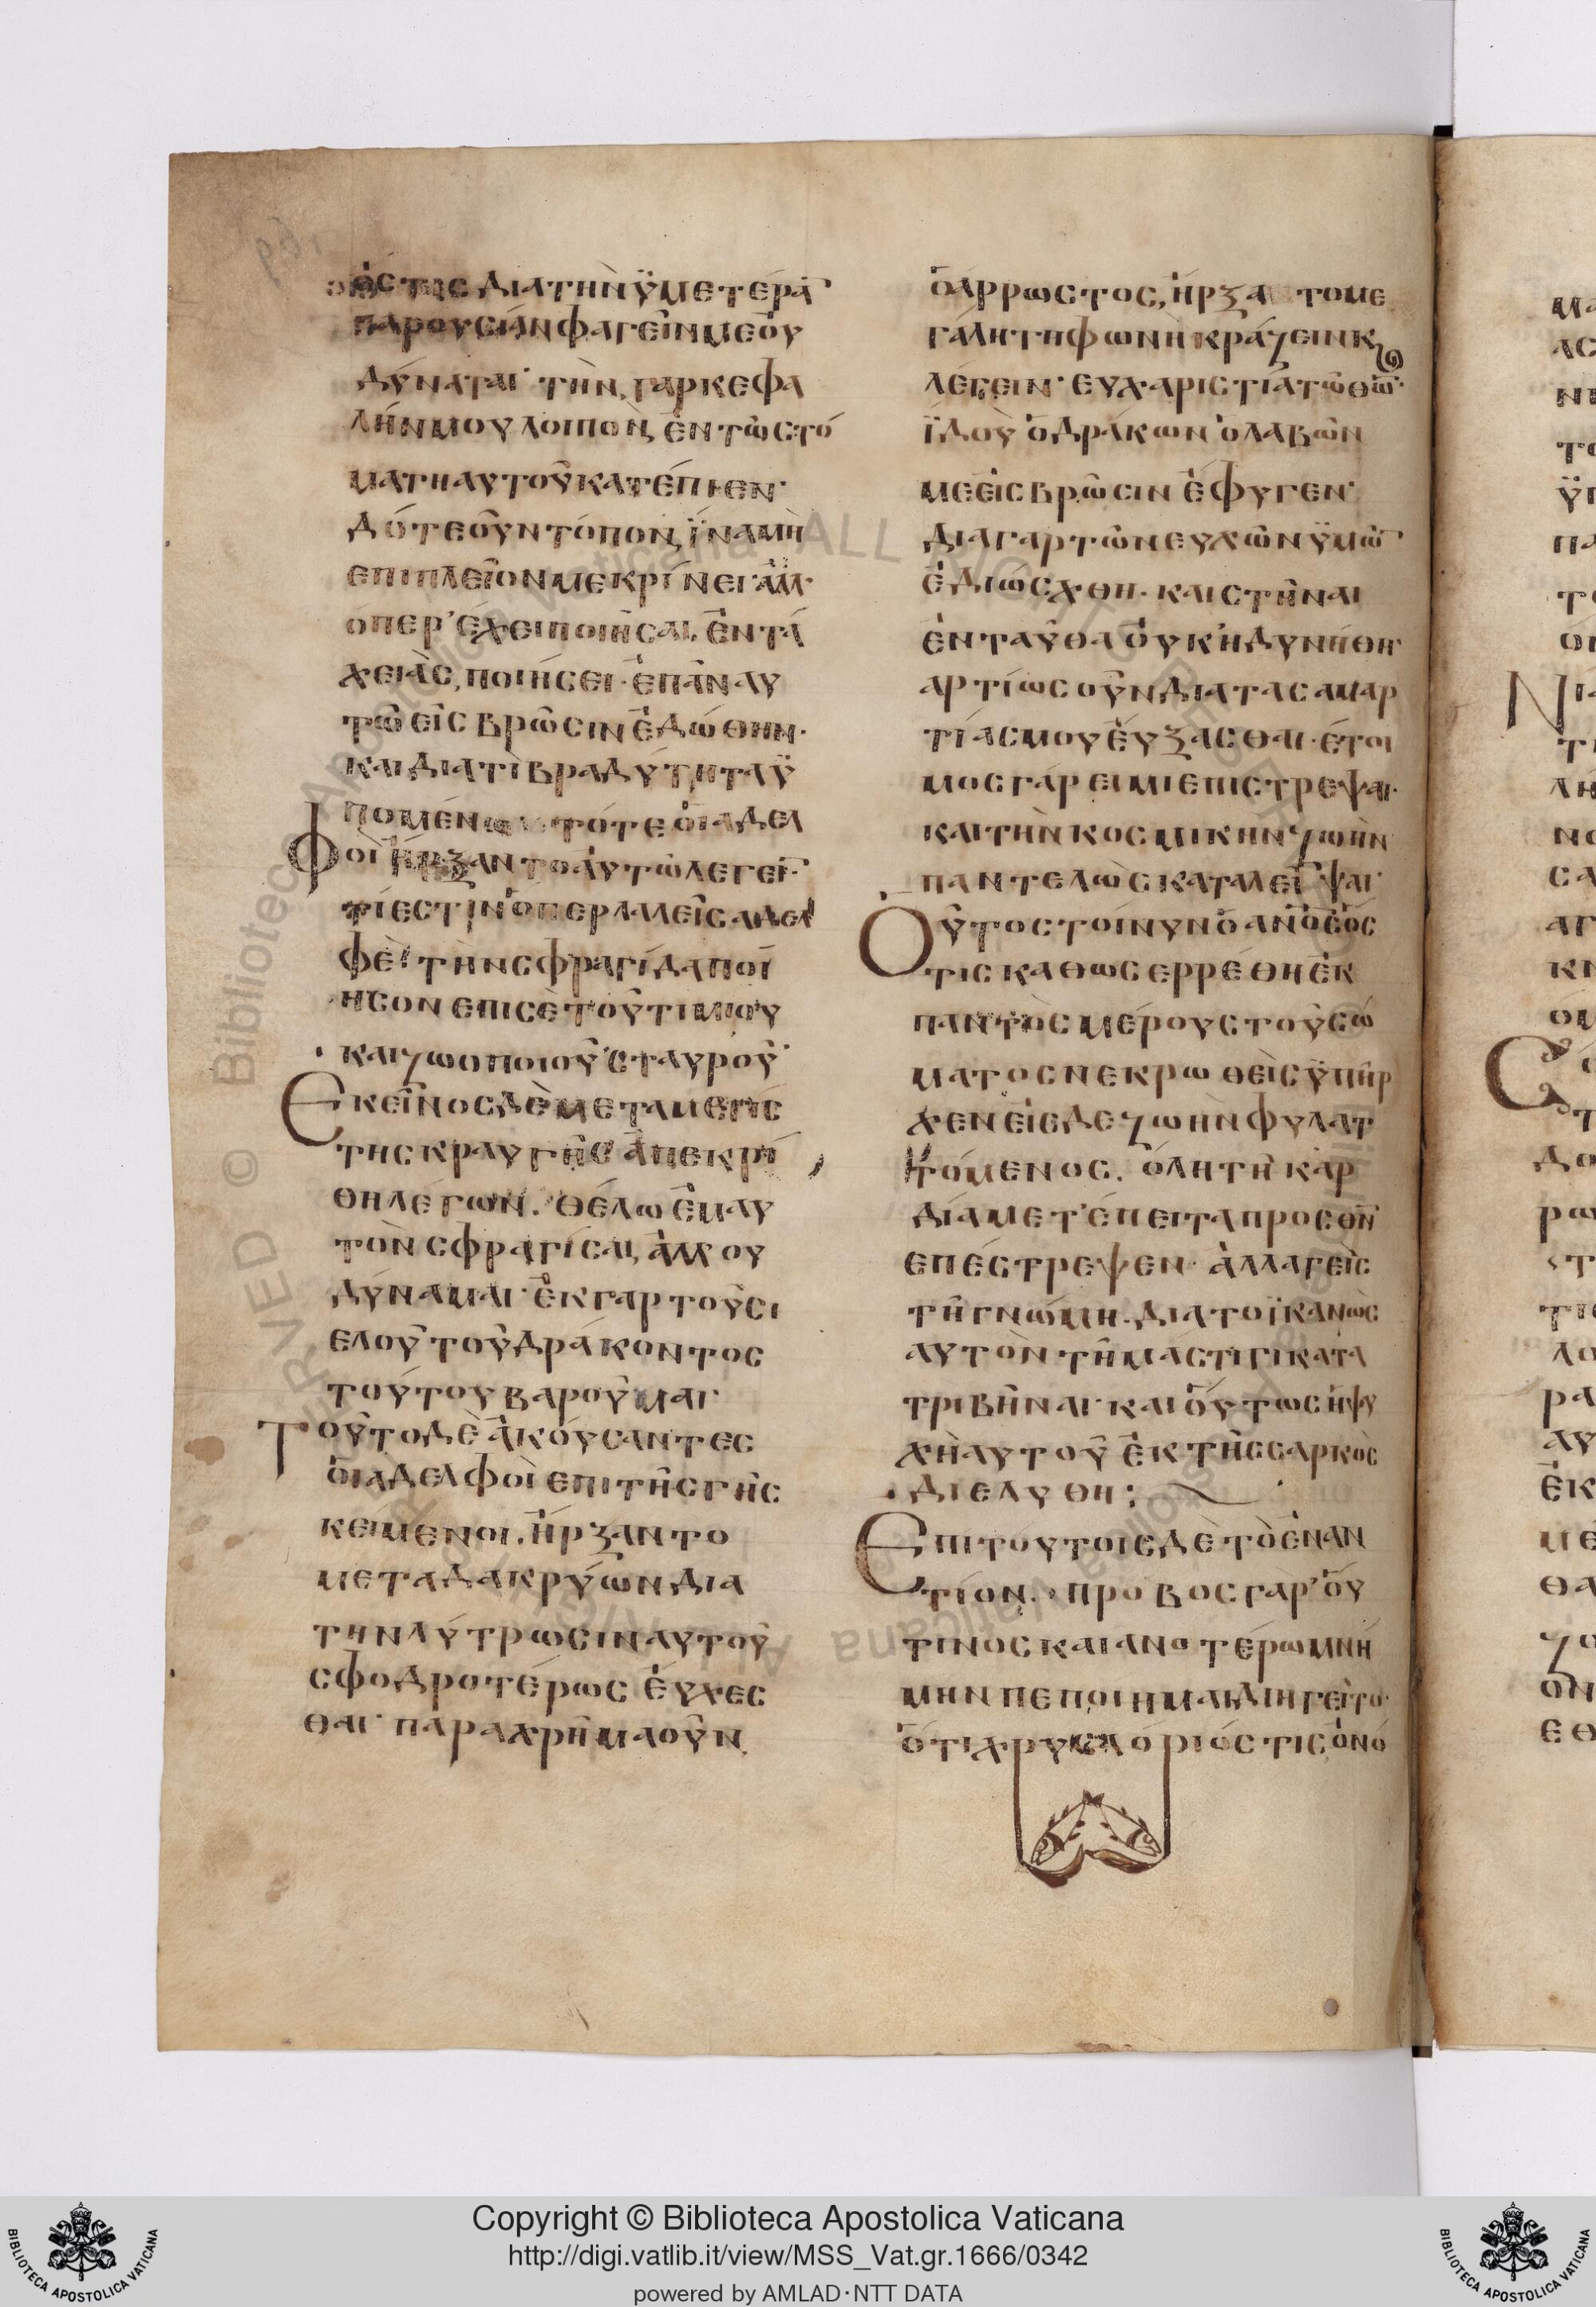 διατηνϋμετέρα̅
παρουσίανφαγεῖνμεοὐ
δύναται· τὴν γαρκεφα
λήνμουλοιπὸν, ἐντῶστό
ματηαυτοῦκατέπιεν·
δότεοῦντόπον, ἵναμὴ
επιπλεῖονμεκρίνει· ἀλλ'
ὅπερ ἔχειποιῆσαι, ἐντά
χειὰς, ποιήσει· ἐπὰναυ
τῶεἰςβρῶσινἐδώθην·
καιδιατιβραδύτηταϋ
πομένω τότεὁιαδελ
φοὶἤρξαντοἀυτῶλεγει̅·
τίεστὶνὅπερλαλεῖςαδελ
φέ! τὴνσφραγίδαποί
ησονεπισὲτοῦτιμίου
καιζωοποιοῦσταυροῦ·
Εκεῖνοςδὲμεταμεγίς
τηςκραυγῆςἀπεκρί
θηλέγων. θέλωἐμαυ
τὸνσφραγίσαι, ἀλλ'ου
δύναμαι· ἐκγαρτοῦσι
ελοῦτοῦδράκοντος
τούτουβαροῦμαι·
Τοῦτοδὲἀκούσαντες
ὁιαδελφοὶεπιτῆςγῆς
κειμενοι. ἤρξαντο
μεταδακρύωνδια
τηνλύτρωσιναυτοῦ
σφοδροτέρως ἐύχεσ
θαι· παραχρῆμαοῦν
ὁάρρωστος, ἤρξα τομε
γάλητηφωνὴκράζεινκ
λέγειν· ευχαριστίατῶθῶ·
ἰδοὺὁδράκωνὁλαβὼν
μεεἰςβρῶσινἔφυγεν·
διαγαρτῶνευχῶνϋμῶ̅
ἐδιώσχθη· καιστῆναι
ἐνταῦθαὀυκἠδυνήθη·
αρτίωςοῦνδιατασαμαρ
τίαςμουἐύξασθαι· έτοι
μοςγάρειμιεπιστρεψαι·
καιτὴνκοσμικηνζωὴν
παντελῶςκαταλεῖψαι·
Οὗτοςτοίνυνὁανο̅ςὅς
τιςκαθωςερρέθηἐκ
παντὸςμέρουςτοῦσώ
ματοςνεκρωθεὶςὑπῆρ
χενεἰςδεζωὴνφυλατ
τόμενος. ὅλητῆκαρ
δίαμετ'έπειταπροσθν̅
επέστρεψεν· ἀλλαγεὶς
τῆγνώμη. διατοϊκανῶς
αυτὸντῆμάστιγικατα
τριβῆναι· καιόυτωςἡψυ
χὴαυτοῦἐκτῆςσαρκὸς
διελυθη:
Επιτουτοιςδὲτὸἐναν
τίον· προβοςγὰρ'όυ
τινοςκαιανοτέρωμνή
μηνπεποιημαι, διηγεῖτο·
ὅτιχρυσαόριόςτιςὀνό
Copyright © Biblioteca Apostolica Vaticana
http://digi.vatlib.it/view/MSS_Vat.gr.1666/0342
powered by AMLAD·NTT DATA
BIBLIOTECA APOSTOLICA VATICANA
BIBLIOTECA APOSTOLICA VATICANA